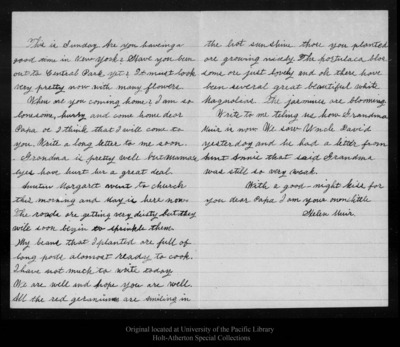 This is Sunday Are you having a
good time in New York? Have you been
out to Central Park yet? It must look
very pretty now with many flowers.
When are you coming home? I am so
lonesome, hurry and come home dear
Papa or I think that I will come to
you. Write a long letter to me soon.
Grandma is pretty well but Mamma's
eyes have hurt her a great deal.
Margaret went to church
this morning and May is here now.
The roads are getting very dusty but they
will soon begin to sprinkle them.
My beans that I planted are full of
long pods almost ready to cook.
I have not much to write today
We are well and hope you are well.
All the red geraniums are smiling in
the hot sunshine those you planted
are growing nicely. The portulaca blos
soms are just lovely and oh there have
been several great beautiful white
Magnolias. The jasmines are blooming
Write to me telling us how Grandma
Muir is now We saw Uncle David
yesterday and he had a letter from
Aunt Annie that said Grandma
was still so very weak.
With a good-night kiss for
you dear Papa I am your own little
Helen Muir.
Original located at University of the Pacific Library
Holt-Atherton Special Collections